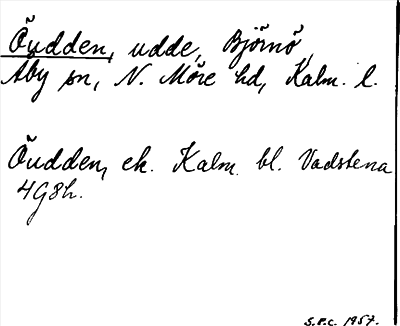 Öudden, udde, Björnö,
Åby sn, N. Möre hd, Kalm. l.
Öudden, ek. Kalm. bl. Vadstena
4G8h.
S.P.C. 1957.